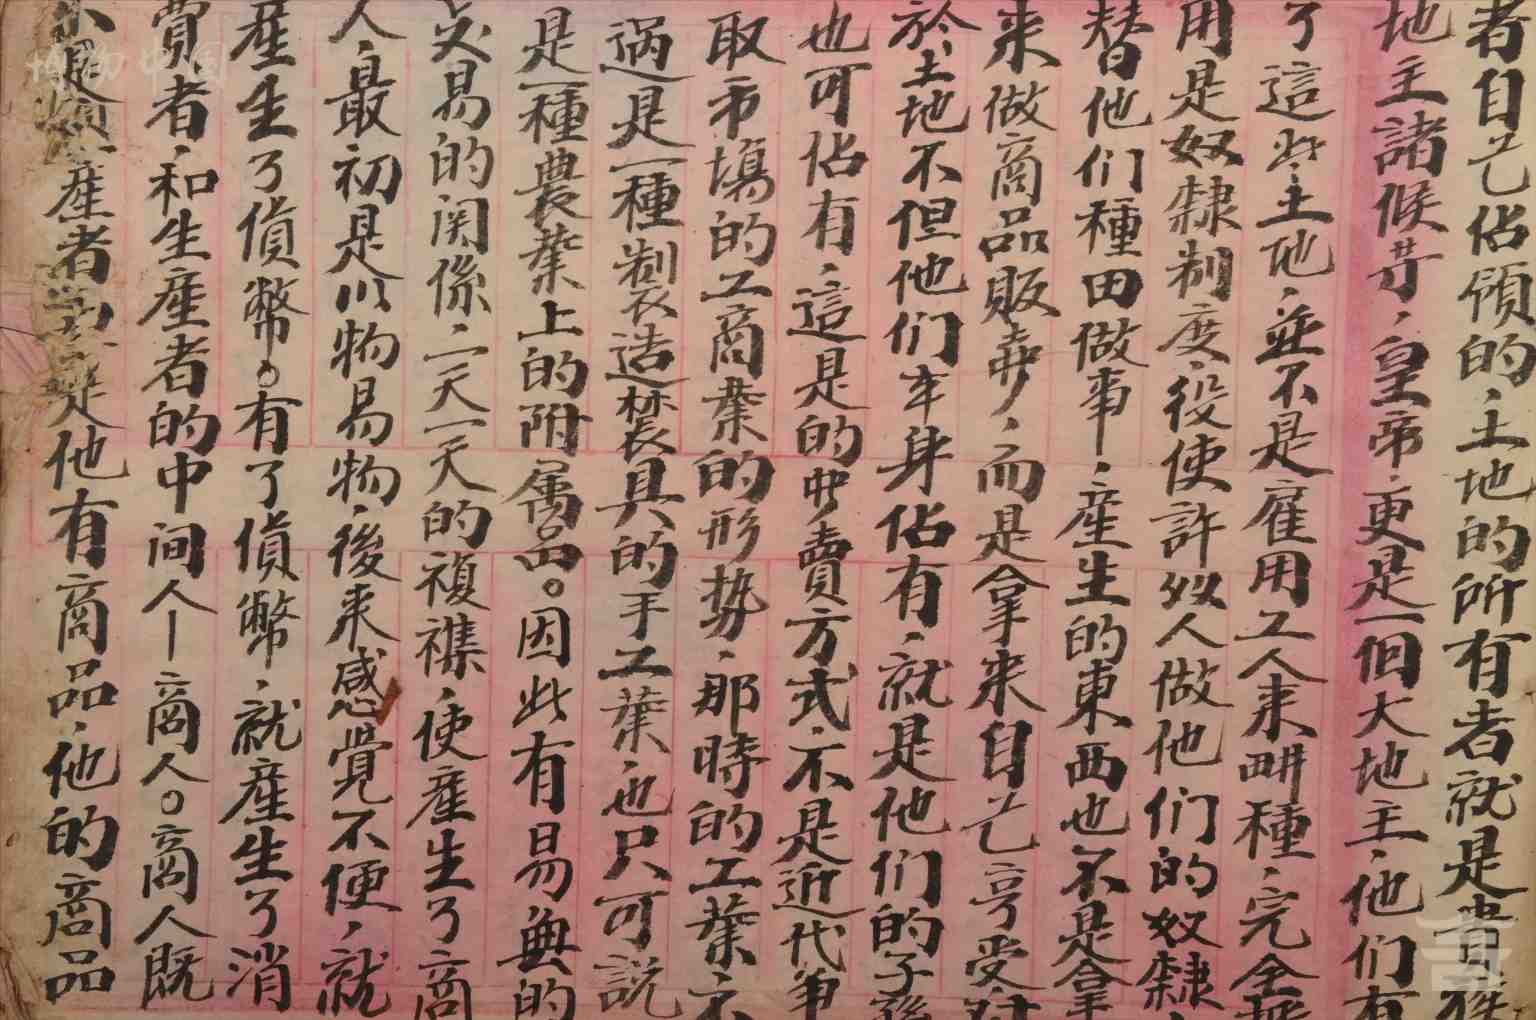 者自己佔領的、土地的所有者就是貴
地主諸候等、皇帝更是一個大地主、他们有
了這些土地、並不是雇用工人来耕種、完全
用是奴隸制度、役使許多奴人做他们的奴隸
替他们種田做事、產生的東西也不是拿
来做商品販賣、而是拿来自己享受对
於土地不但他们本身佔有、就是他们的子孫
也可佔有、這是的買賣方式不是近代争
取市場的工商業的形势、那時的工業不
过是一種製造裝具的手工業、也只可説
是一種農業上的附属品。因此有易無的
交易的関係、一天一天的複襍、使產生了商
人、最初是以物易物、後来感覺不便、就
產生了貨幣。有了貨幣、就產生了消
費者、和生產者的中间人—商人。商人既
不是 產者 是他有商品、他的商品
博物中国